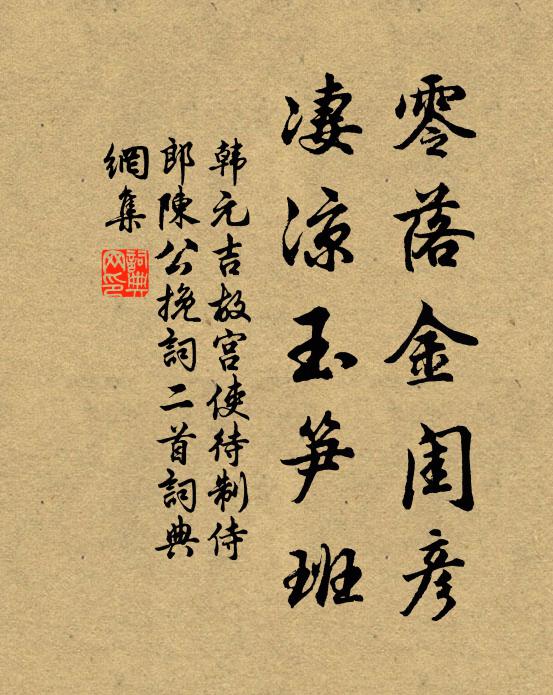 零落金闺彦
凄凉玉笋班
韩元吉故宫使待制侍
郎陳公挽詞二首詞典
網集
詞典
网印